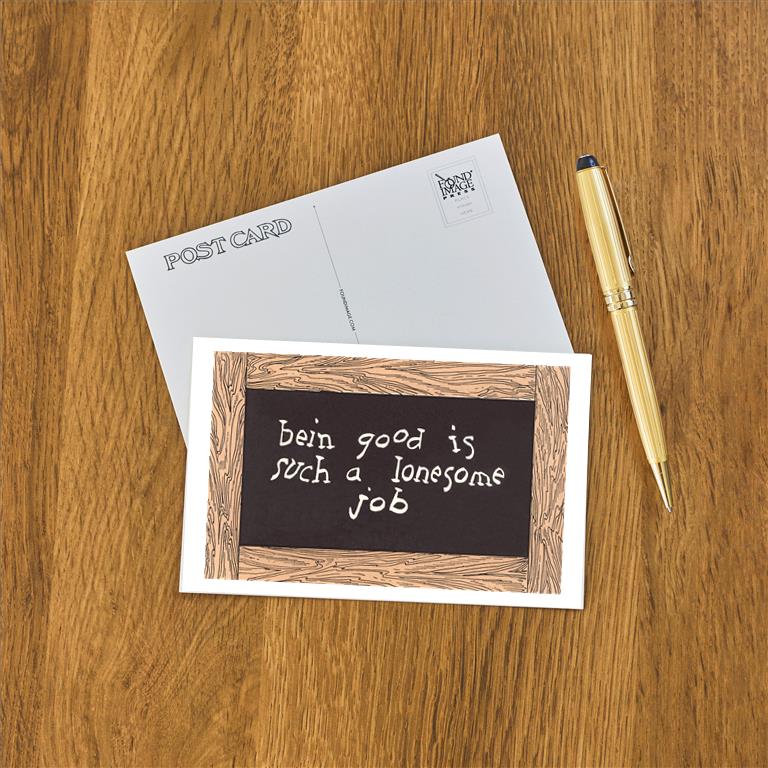 POST CARD
FOUND
IMAGE
PRESS
PLACE
STAMP
HERE
FOUNDIMAGE.COM
bein good is
such a lonesome
job